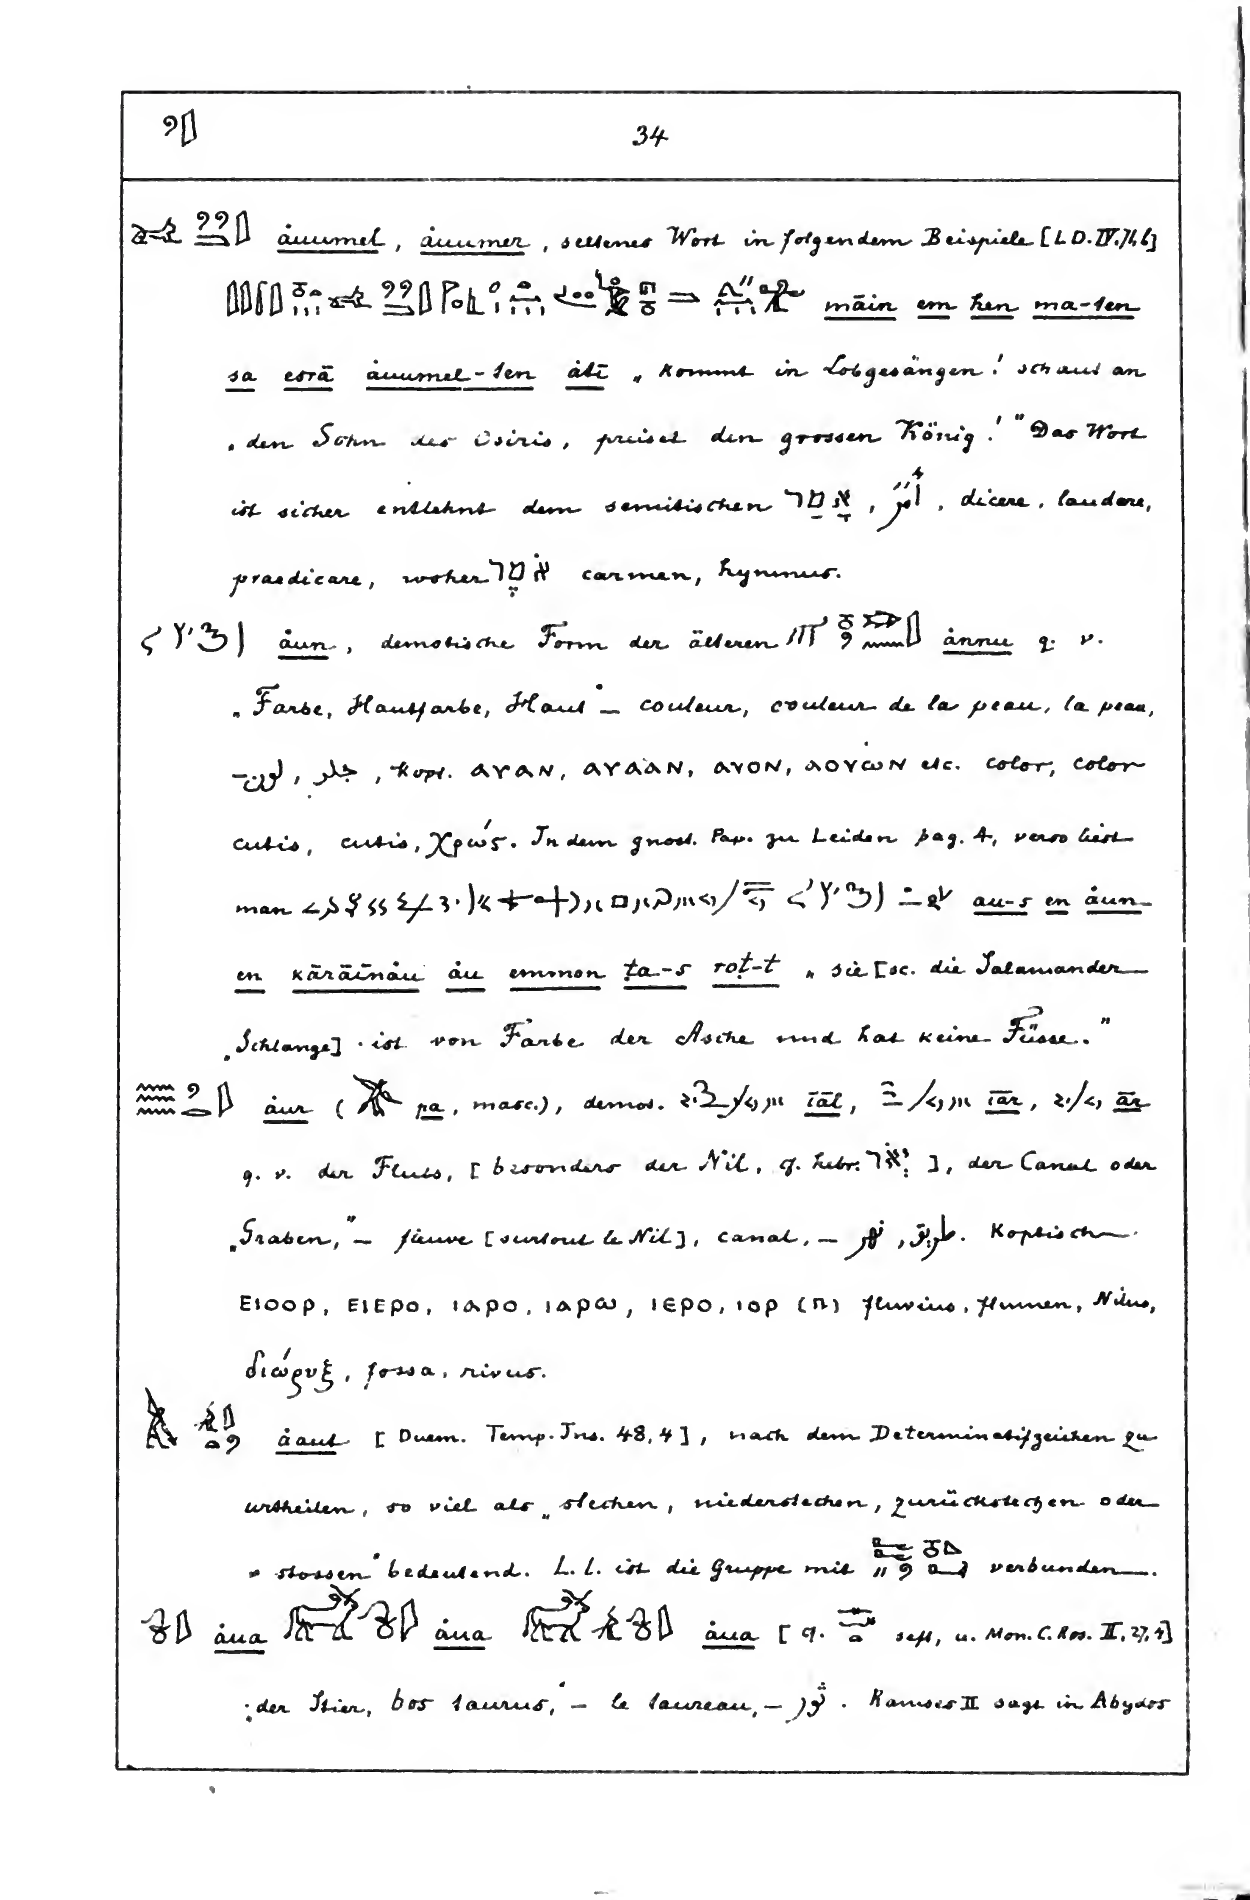 34
ȧuumel, ȧuumer, seltenes Wort in folgendem Beispiele [L D. IV. 71, 6]
māin em ḥen ma-ten
sa esrā ȧuumel-ten ȧtī „Kommt in Lobgesängen! schaut an
„den Sohn des Osiris, preiset den grossen König!" Das Wort
ist sicher entlehnt dem semitischen אָמַר, أمر, dicere, laudare,
praedicare, woher אֹמֶר carmen, hymnus.
ȧun, demotische Form der älteren ȧnnu q. v.
„Farbe, Hautfarbe, Haut" – couleur, couleur de la peau, la peau,
– لون, جلد, Kopt. ⲁⲩⲁⲛ, ⲁⲩⲁⲁⲛ, ⲁⲩⲟⲛ, ⲁⲟⲩⲱⲛ etc. color, color
cutis, cutis, χρώς. In dem gnost. Pap. zu Leiden pag. 4, verso liest
man au-s en ȧun-
en kārāīnȧu ȧu emmon ṭa-s roṭ-t „sie [sc. die Salamander
„Schlange] ist von Farbe der Asche und hat keine Füsse."
ȧur ( pa, masc.), demot. īāl, īār, ār
q. v. der Fluss, [besonders der Nil, cf. hebr. יְאֹר], der Canal oder
„Graben," – fleuve [surtout le Nil], canal, – نهر, طريق. Koptisch
ⲉⲓⲟⲟⲣ, ⲉⲓⲉⲣⲟ, ⲓⲁⲣⲟ, ⲓⲁⲣⲱ, ⲓⲉⲣⲟ, ⲓⲟⲣ (ⲡ) fluvius, flumen, Nilus,
διώρυξ, fossa, rivus.
ȧaut [Duem. Temp. Ins. 48, 4], nach dem Determinatifzeichen zu
urtheilen, so viel als „stechen, niederstechen, zurückstechen oder
„stossen" bedeutend. L. l. ist die Gruppe mit verbunden.
ȧua ȧua ȧua [cf. seft, u. Mon. C. Ros. II, 27, 4]
„der Stier, bos taurus," – le taureau, – ثور. Ramses II sagt in Abydos